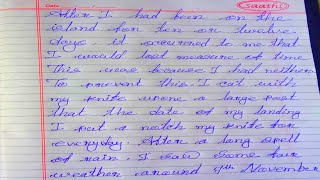 Saathi
After I had been on the
island for ten or twelve
days. it occurred to me that
I would lost measure of time
This was because I had neither
To prevent this. I cat with
my knife upone a large post
that the date of my landing
I put a natch my knife for
everyday. After a long spell
of rain. I saw some fair
weather around 9th November